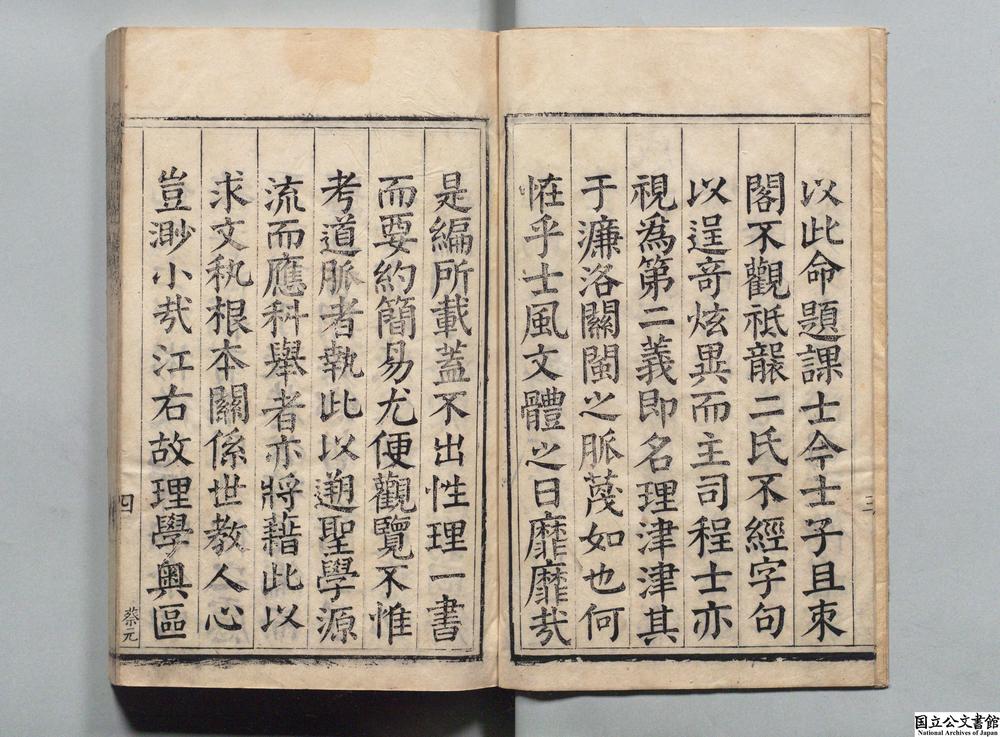 以此命題課士今士子且束
閣不觀祗襲二氏不經字句
以逞奇炫異而主司程士亦
視為第二義即名理津津其
于濂洛關閩之脈蔑如也何
恠乎士風文體之日靡靡㢤
三
是編所載蓋不出性理一書
而要約簡易尤便觀覽不惟
考道脈者執此以遡聖學源
流而應科舉者亦將藉此以
求文秇根本關係世教人心
豈渺小㢤江右故理學奧區
四
蔡元
国立公文書館
National Archives of Japan